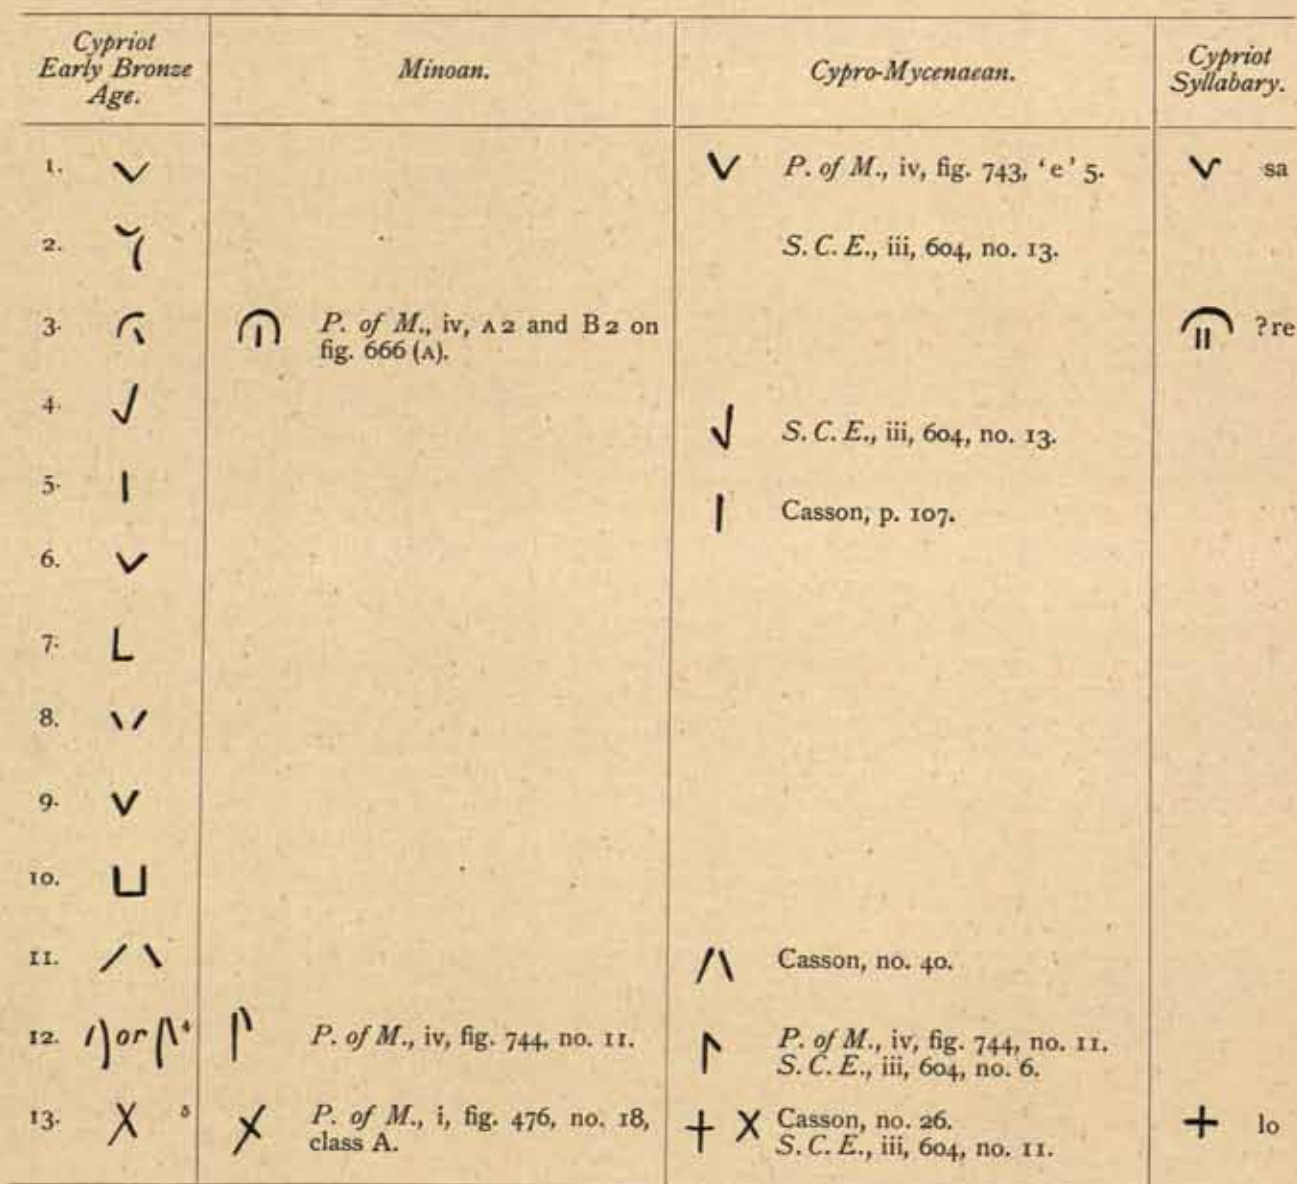 Cypriot Early Bronze Age. Minoan. Cypro-Mycenaean. Cypriot Syllabary.
1. P. of M., iv, fig. 743, ‘e’ 5. sa
2. S.C.E., iii, 604, no. 13.
3. P. of M., iv, A2 and B2 on ?re
fig. 666 (A).
4.
S.C.E., iii, 604, no. 13.
5.
Casson, p. 107.
6.
7.
8.
9.
10.
11. Casson, no. 40.
12. or 4 P. of M., iv, fig. 744, no. 11. P. of M., iv, fig. 744, no. 11.
S.C.E., iii, 604, no. 6.
13. 5 P. of M., i, fig. 476, no. 18, Casson, no. 26. lo
class A. S.C.E., iii, 604, no. 11.